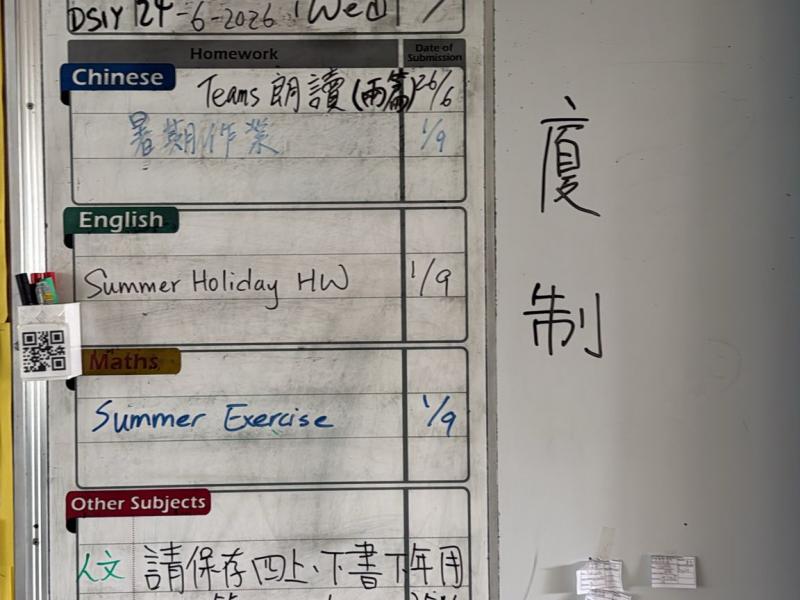 24-6-2026 (Wed)
Homework
Date of Submission
Chinese
Teams 朗讀(兩篇) 26/6
暑期作業 1/9
English
Summer Holiday HW 1/9
Maths
Summer Exercise 1/9
Other Subjects
人文 請保存四上、下書下年用
廈
制